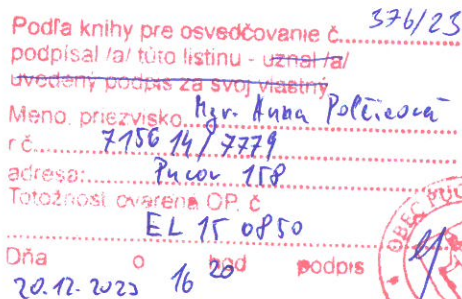 Podľa knihy pre osvedčovanie č. 376/23
podpísal /a/ túto listinu - uznal /a/
uvedený podpis za svoj vlastný
Meno, priezvisko Mgr. Anna Polčicová
r č. 715614/7779
adresa: Pucov 158
Totožnosť overená OP. č
EL 15 0850
Dňa o hod podpis
20.12.2023 16 20
OBEC PUC